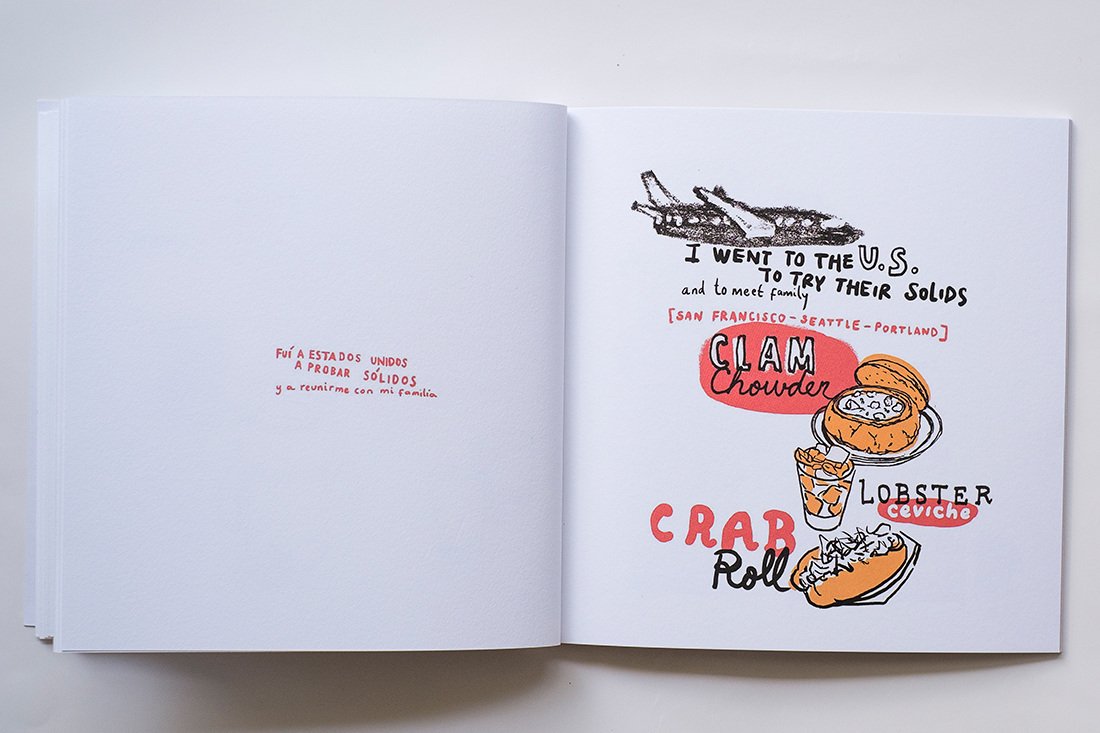 FUÍ A ESTADOS UNIDOS
A PROBAR SÓLIDOS
y a reunirme con mi familia
I WENT TO THE U.S.
TO TRY THEIR SOLIDS
and to meet family
[SAN FRANCISCO-SEATTLE-PORTLAND]
CLAM
Chowder
LOBSTER
ceviche
CRAB
Roll